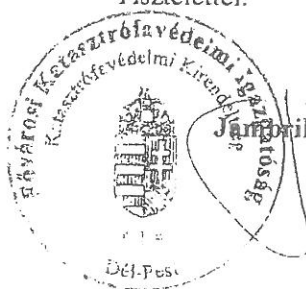 Tisztelettel:
Fővárosi Katasztrófavédelmi Igazgatóság
Katasztrófavédelmi Kirendeltség
Dél-Pest